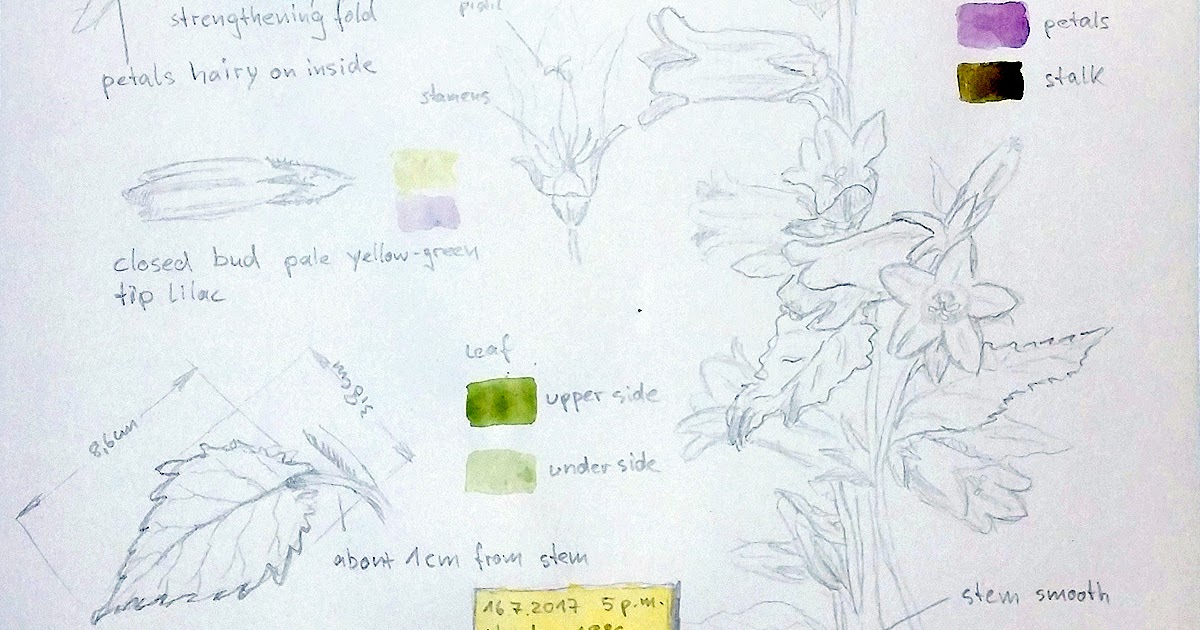 strengthening fold
petals hairy on inside
pistil
stamens
petals
stalk
closed bud pale yellow-green
tip lilac
8,6cm
3,8cm
Leaf
upper side
under side
about 1cm from stem
16 7.2017 5 p.m.
stem smooth